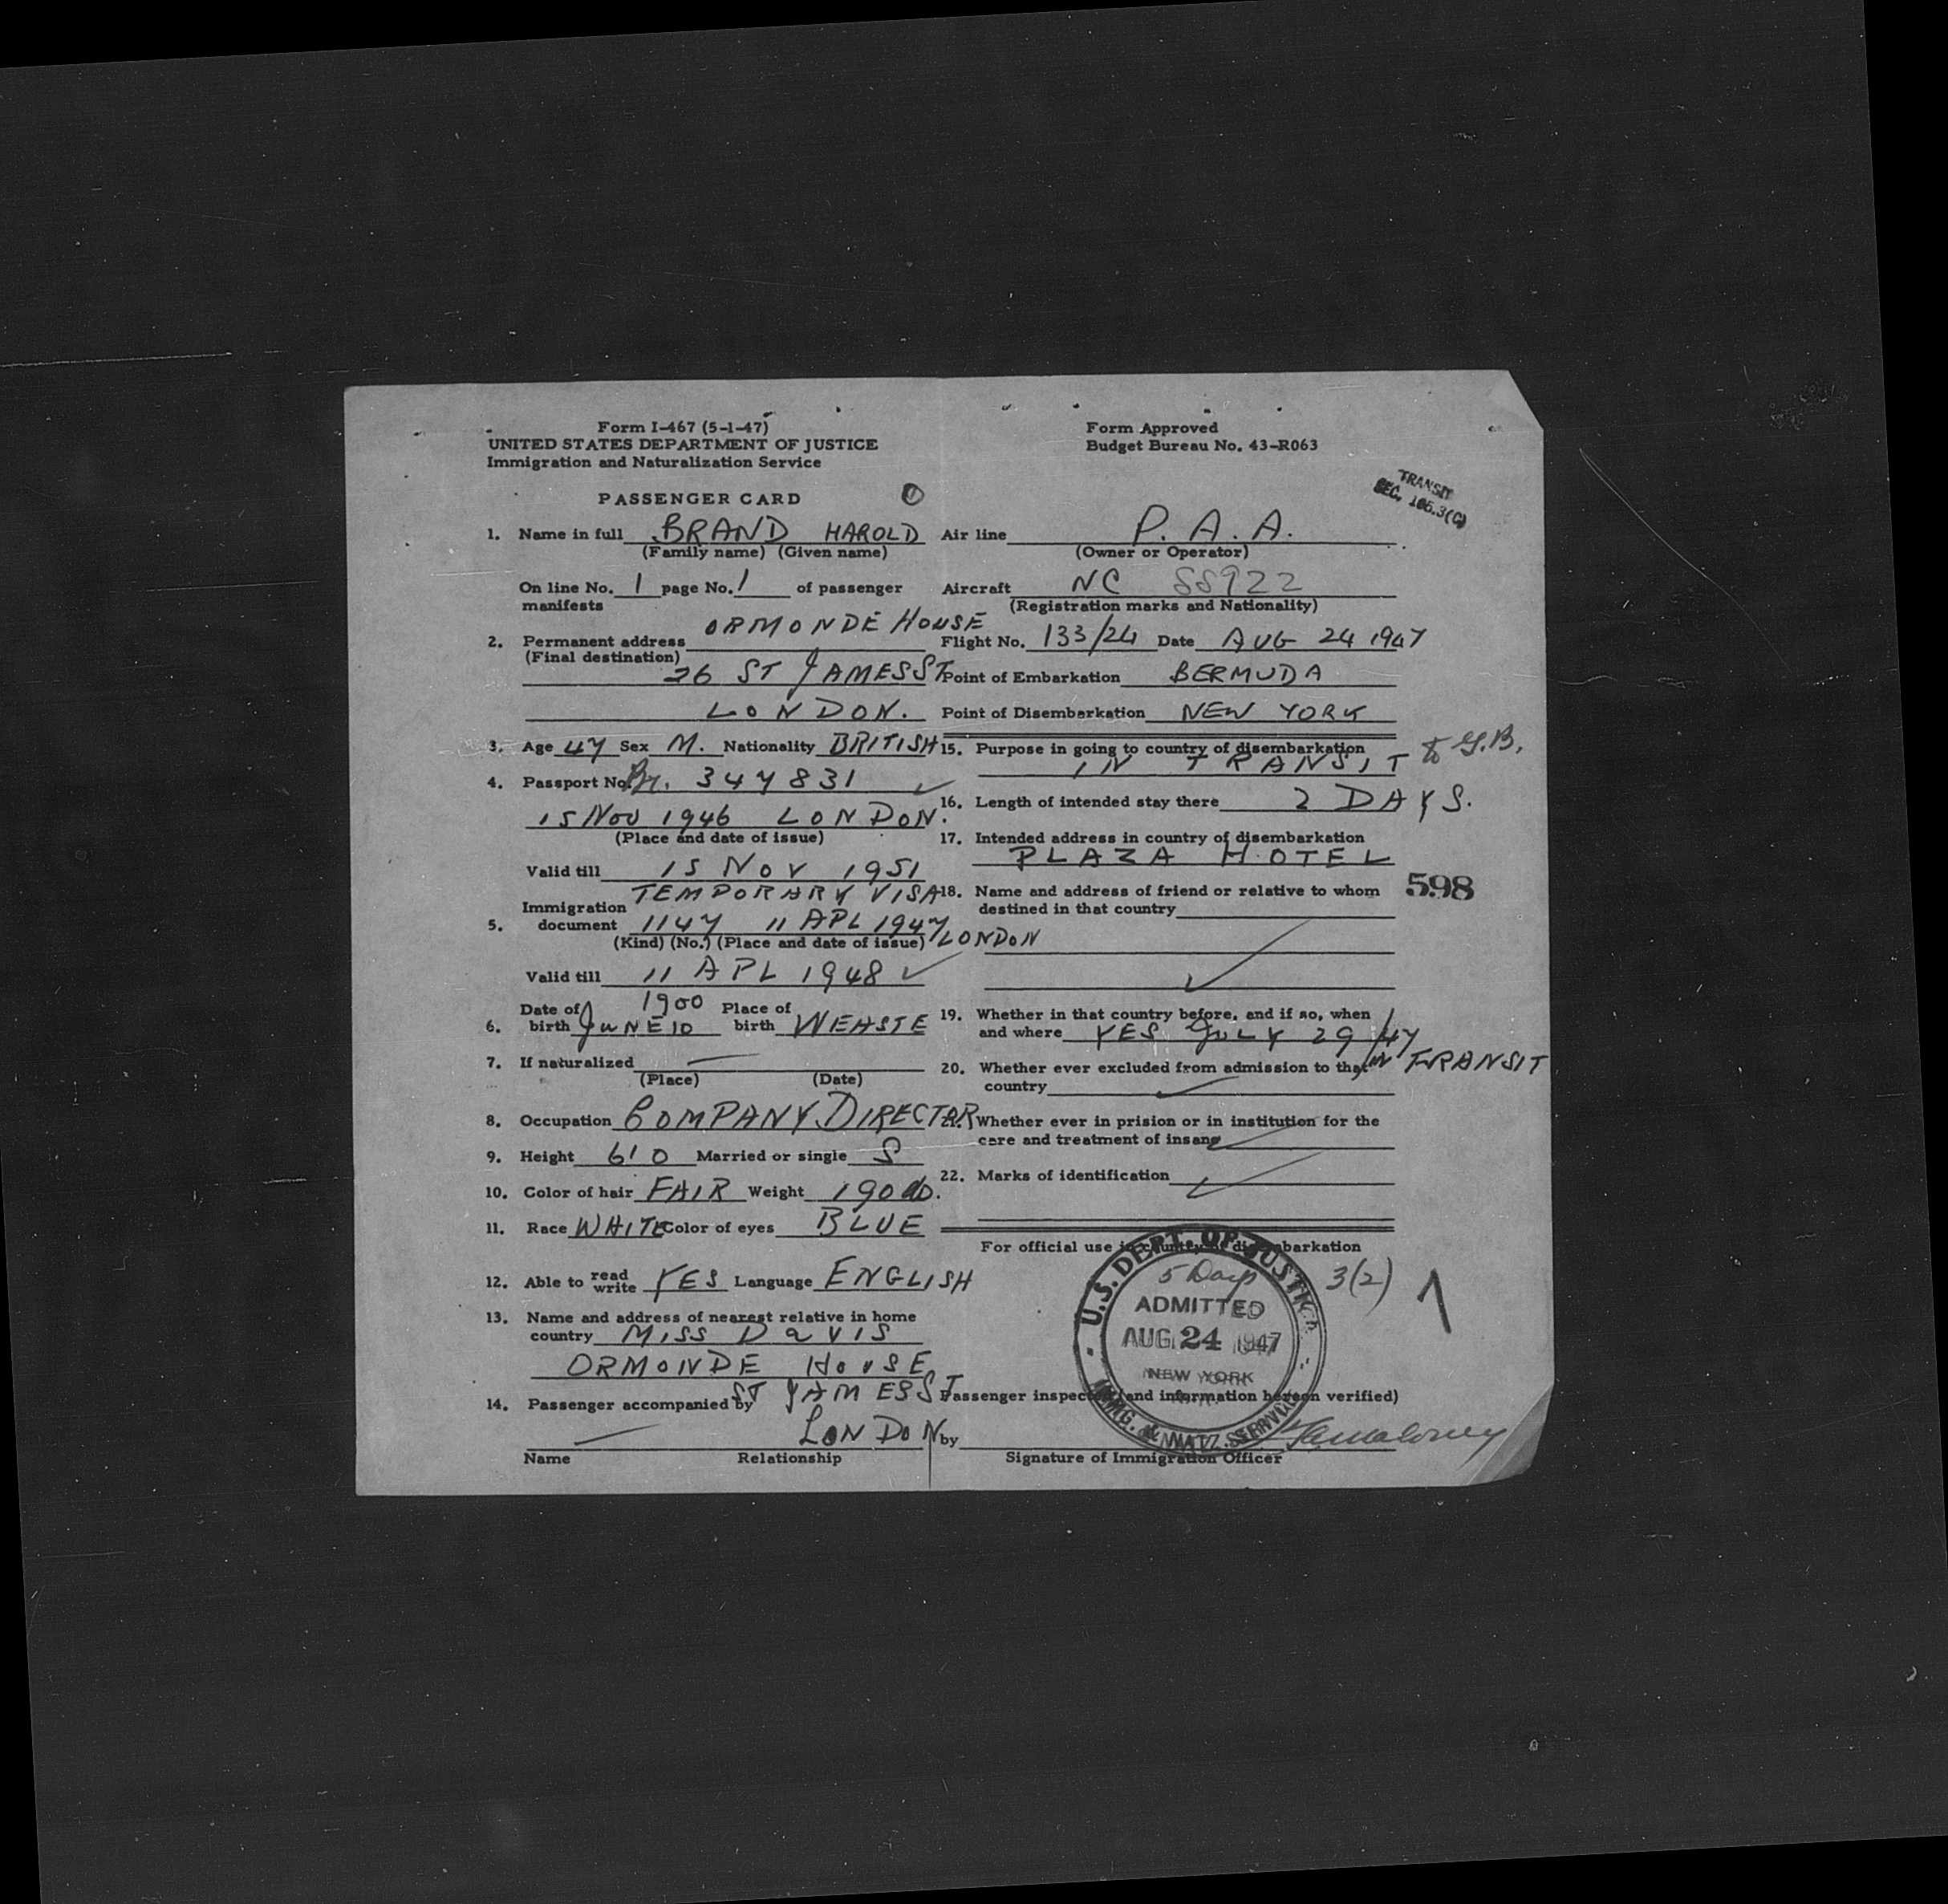 Form I-467 (5-1-47)
UNITED STATES DEPARTMENT OF JUSTICE
Immigration and Naturalization Service
PASSENGER CARD
1. Name in full BRAND HAROLD
(Family name) (Given name)
On line No. 1 page No. 1 of passenger
manifests
2. Permanent address ORMONDE HOUSE
(Final destination)
26 ST JAMES ST
LONDON.
3. Age 47 Sex M. Nationality BRITISH
4. Passport No. Br. 347831
15 Nov 1946 LONDON.
(Place and date of issue)
Valid till 15 NOV 1951
TEMPORARY VISA
Immigration
5. document 1147 11 APL 1947 LONDON
(Kind) (No.) (Place and date of issue)
Valid till 11 APL 1948
Date of 1900 Place of
6. birth JUNE 10 birth WEASTE
7. If naturalized
(Place) (Date)
8. Occupation COMPANY DIRECTOR
9. Height 6' 0 Married or single S
10. Color of hair FAIR Weight 190 lb.
11. Race WHITE Color of eyes BLUE
12. Able to read write YES Language ENGLISH
13. Name and address of nearest relative in home
country MISS DAVIS
ORMONDE HOUSE
ST JAMES ST
14. Passenger accompanied by
LONDON
Name Relationship
Form Approved
Budget Bureau No. 43-R063
TRANSIT
SEC. 165.3(C)
Air line P.A.A.
(Owner or Operator)
Aircraft NC 88922
(Registration marks and Nationality)
Flight No. 133/24 Date AUG 24 1947
Point of Embarkation BERMUDA
Point of Disembarkation NEW YORK
15. Purpose in going to country of disembarkation
IN TRANSIT to G.B.
16. Length of intended stay there 2 DAYS.
17. Intended address in country of disembarkation
PLAZA HOTEL
18. Name and address of friend or relative to whom
destined in that country
598
19. Whether in that country before, and if so, when
and where YES JULY 29/47
IN TRANSIT
20. Whether ever excluded from admission to that
country
21. Whether ever in prision or in institution for the
care and treatment of insane
22. Marks of identification
For official use in country of disembarkation
U.S. DEPT. OF JUSTICE
5 Days 3(2) 1
ADMITTED
AUG 24 1947
NEW YORK
IMMG. & NATZ. SERVICE
(Passenger inspected and information hereon verified)
by
Signature of Immigration Officer